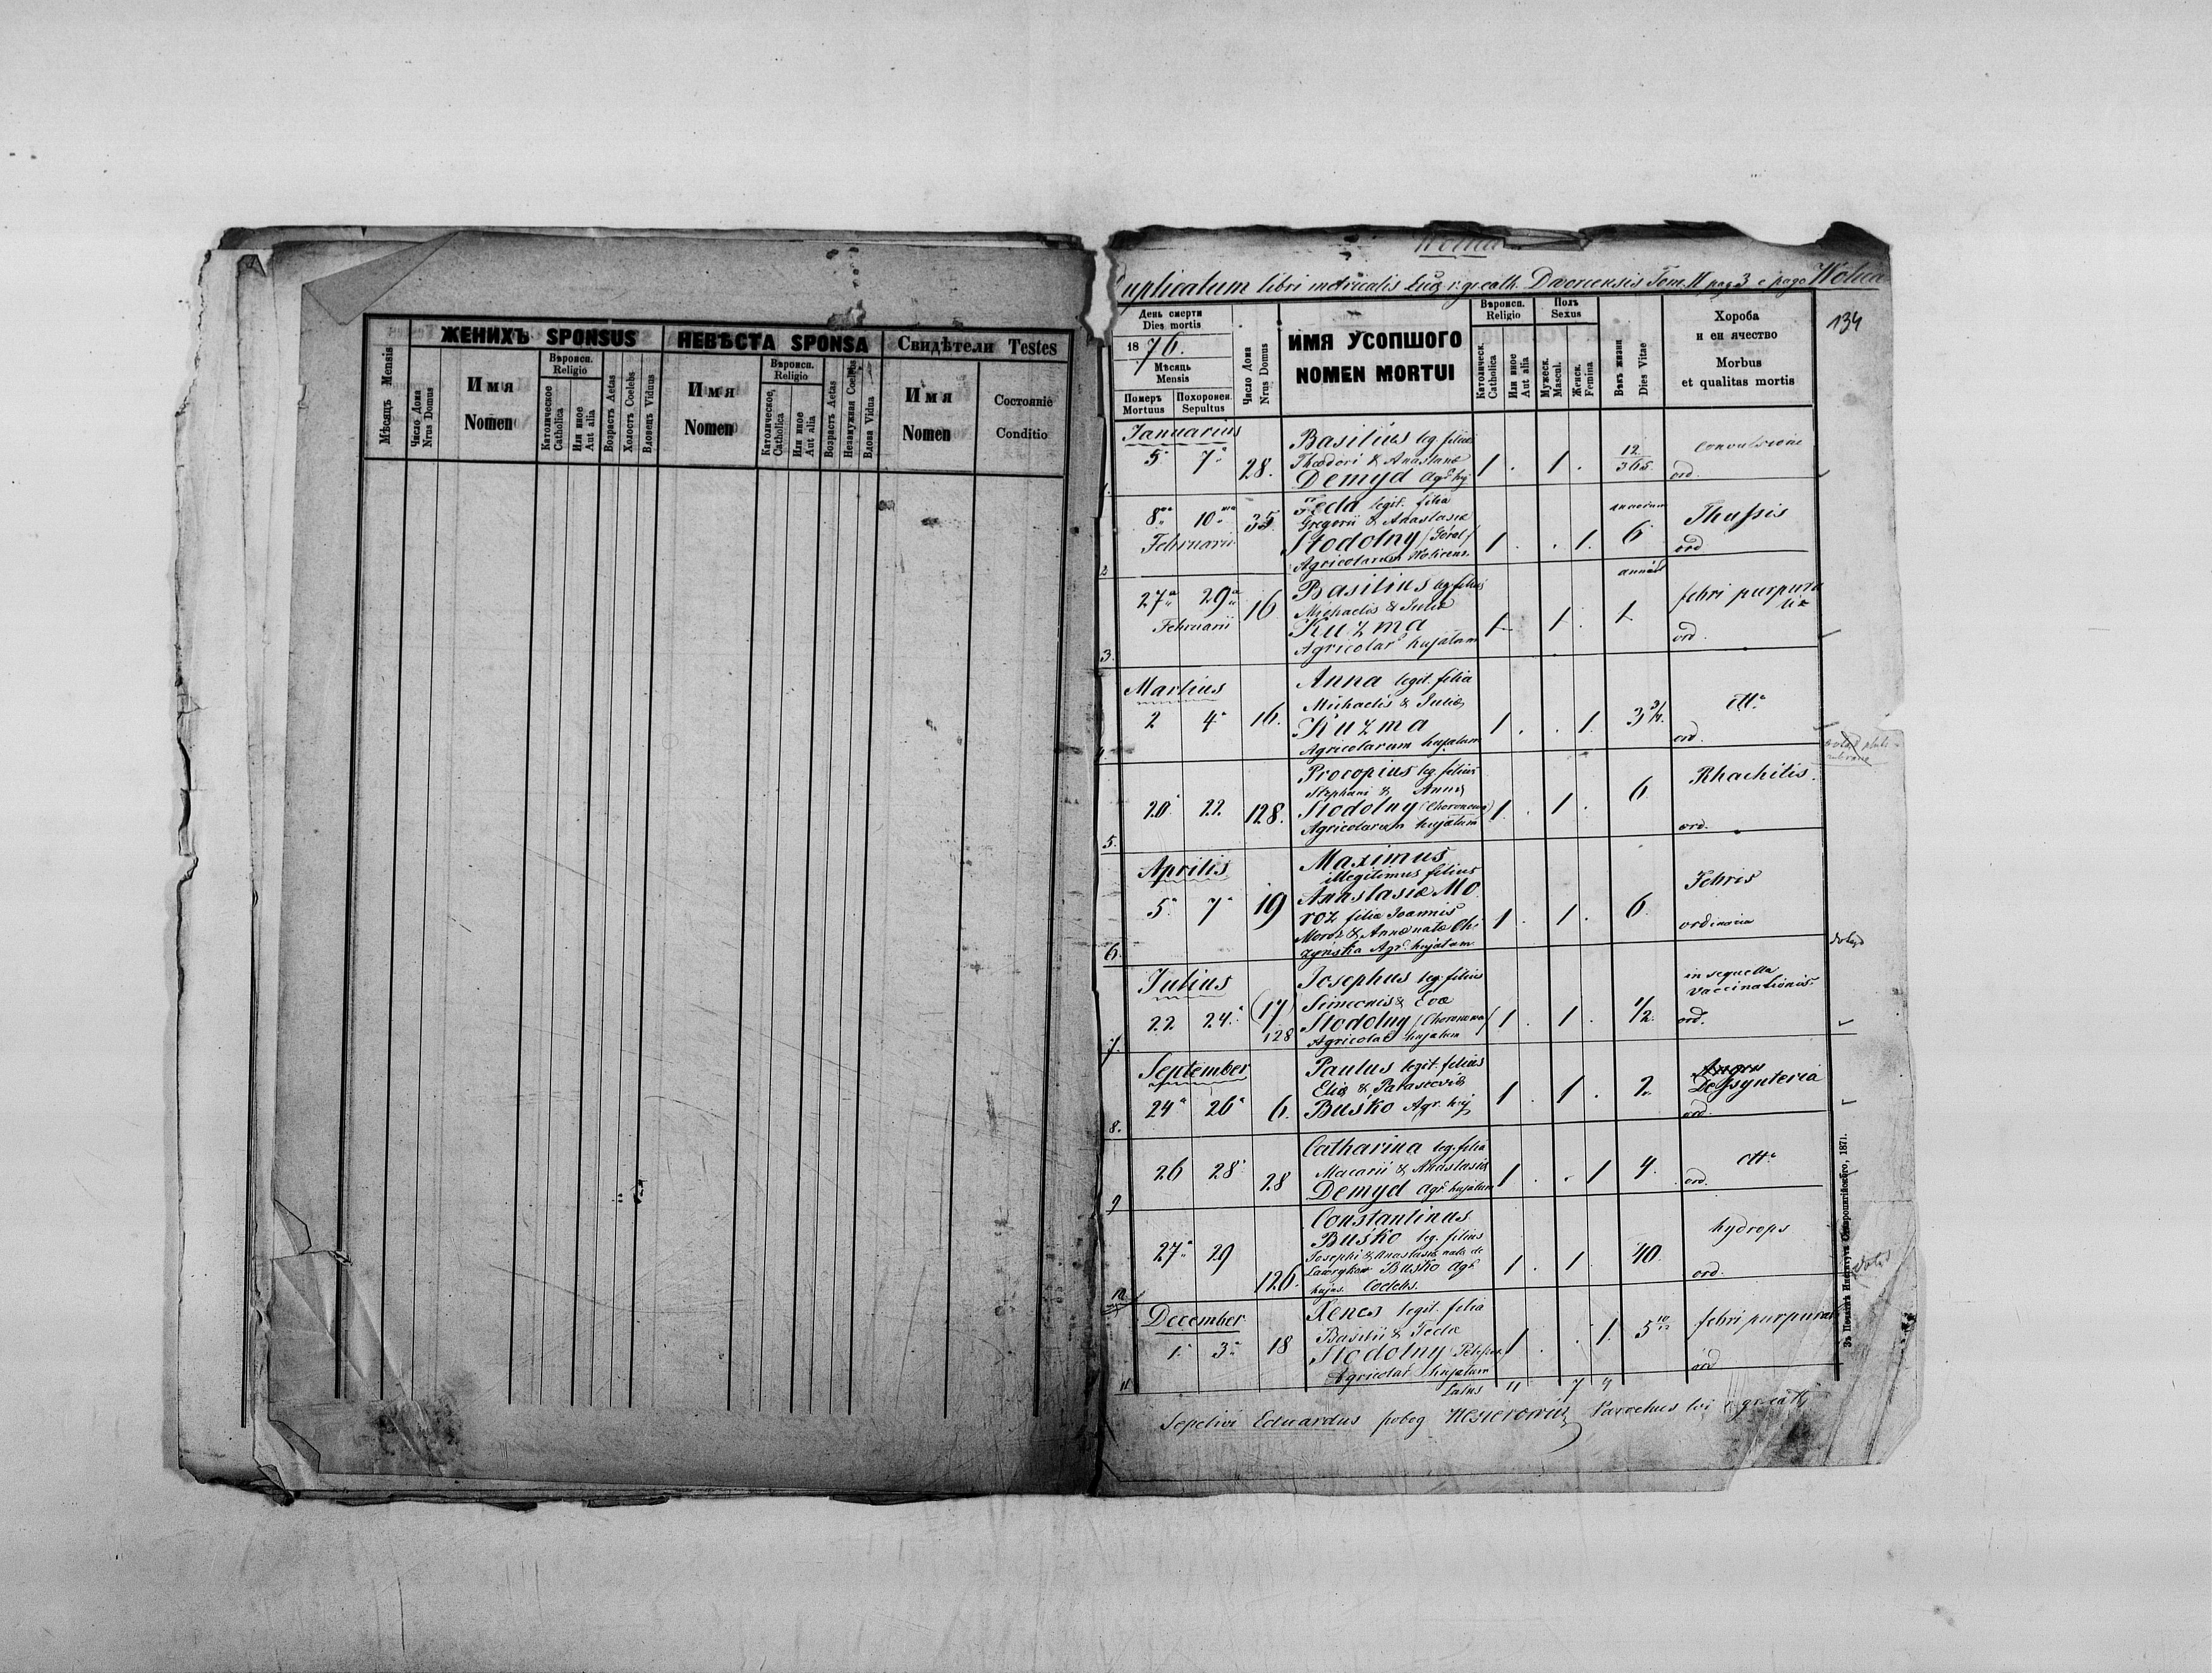 ЖЕНИХЪ SPONSUS
НЕВѢСТА SPONSA
Свидѣтели Testes
Мѣсяцъ Mensis
Число Дома
Nrus Domus
Имя
Nomen
Вѣроисп.
Religio
Католическое
Catholica
Или иное
Aut alia
Возрастъ Aetas
Холостъ Coelebs
Вдовецъ Viduus
Имя
Nomen
Вѣроисп.
Religio
Католическое,
Catholica
Или иное
Aut alia
Возрастъ Aetas
Незамужная Coelebs
Вдова Vidua
Имя
Nomen
Состоянiе
Conditio
Duplicatum libri metricalis r. gr. cath. Tom. II pag 3 e pago Wolica
134
День смерти
Dies mortis
1876.
Мѣсяць
Mensis
Померъ
Mortuus
Похоронен.
Sepultus
Число Дома
Nrus Domus
ИМЯ УСОПШОГО
NOMEN MORTUI
Вѣроисп.
Religio
Католическ.
Catholica
Или иное
Aut alia
Полъ
Sexus
Мужеск.
Mascul.
Женск.
Femina
Вѣкъ жизни
Dies Vitae
Хороба
и еи ячество
Morbus
et qualitas mortis
Januarius
1. 5 7 28. Basilius leg. filius
Theodori & Anastasiae
Demyd Agr. huj 1 . 1 . 12/365. Convulsione
ord.
2 8 10 35 Fecla legit. filia
Gregorii & Anastasiae
Februarii
Stodolny (Góral)
Agricolarum Wolicens. 1 . . 1. annorum 6 Thussis
ord
3. 27 29 16 Basilius leg. filius
Michaelis & Juliae
Februarii
Kuzma
Agricolar. hujatum 1 1 . 1 febri purpura
ord.
Martius
4. 2 4 16. Anna legit. filia
Michaelis & Juliae
Kuzma
Agricolarum hujatum 1 . . 1 3 dtt.
ord.
5. 20 22 128. Procopius leg. filius
Stephani & Annae
Stodolny (Choronowa)
Agricolarum hujatum 1. . 1 . 6 Rhachitis.
ord.
Aprilis
6. 5 7 19 Maximus
illegitimus filius
Anastasiae Mo
roz filia Joannis
Moroz & Annae natae
Agr. hujatum 1 . 1 . 6. Febris
ordinaria
Julius
7. 22 24 (17) 128 Josephus leg. filius
Simeonis & Evae
Stodolny (Choronowa)
Agricolar hujatum 1 . 1 . 1/2. in sequella
vaccinationis
ord.
September
8. 24 26 6. Paulus legit. filius
Eliae & Parasceviae
Buśko Agr. huj 1 . 1 . 2. Dessynteria
ord.
9 26 28 28 Catharina leg. filia
Macarii & Anastasiae
Demyd Agr. hujatum 1 . . 1 4. dtt.
ord.
10 27 29 126. Constantinus
Buśko leg. filius
Josephi & Anastasiae nata de
Buśko Agr.
hujus. Coelebs. 1 . 1 40. hydrops
ord.
December
11 1. 3 18 Xenes legit. filia
Basilii & Feclae
Stodolny
Agricolar hujatum 1 . . 1. 5 10/12 febri purpurali
ord
Latus 11 7 4
Sepelivi Eduardus Parochus loci r gr cath
Зъ Печатнѣ Института Ставропигійского, 1871.